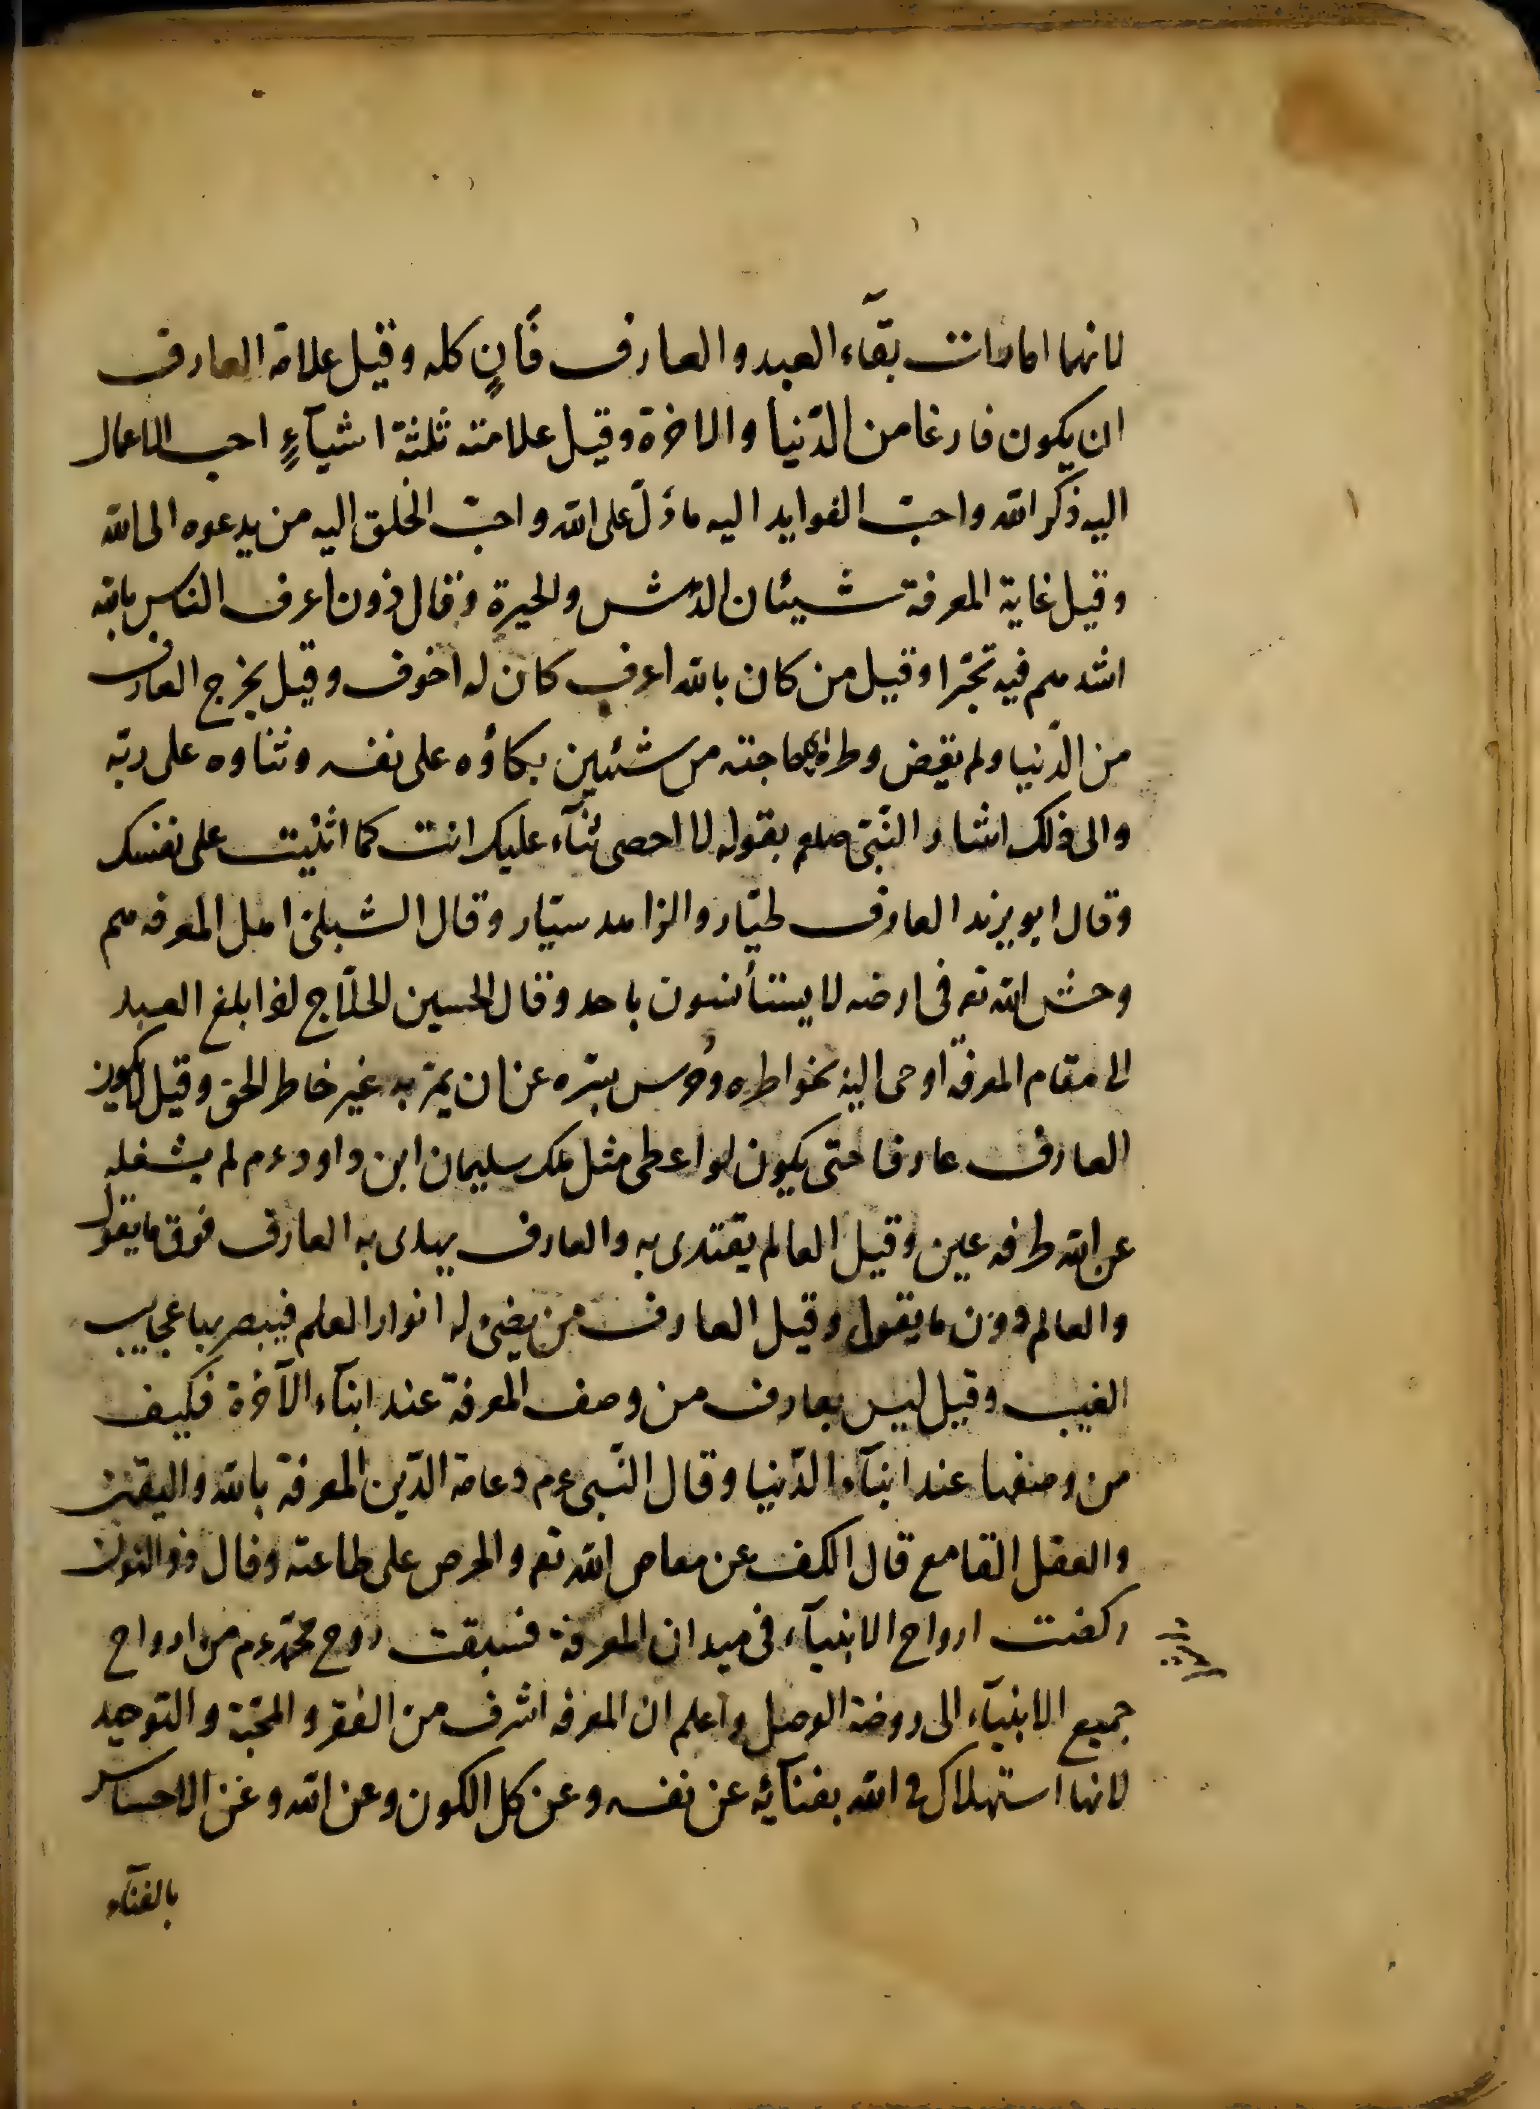 لانهما امارات بقآء العبد والعارف فَانٍ كله وقيل علامة العارف
ان يكون فارغا من الدّنيا والاخرة وقيل علامته ثلثة اشيآءٍ احب الاعمال
اليه ذكر الله واحبّ الفوايد اليه ما دَلّ على الله واحبّ الخلق اليه من يدعوه الى الله
وقيل غاية المعرفة شيئان الدّهش والحيرة وقال ذو ن اعرف الناس بالله
اشدهم فيه تحيّرا وقيل من كان بالله اعرف كان له اخوف وقيل يخرج العارف
من الدّنيا ولم يقض وطره اى حاجته من شئيين بكاؤه على نفسه وثناوه على ربّه
والى ذلك اشار النّبىّ صلعم بقوله لا احصى ثنآء عليك انت كما اثنيت على نفسك
وقال ابو يزيد العارف طيّار والزاهد سيّار وقال الشبلىّ اهل المعرفه هم
وحش الله تع فى ارضه لا يستأنسون باحد وقال الحسين الحلّاج اذا بلغ العبد
الى مقام المعرفة اوحى اليه بخواطره وحُرس بسّره عن ان يمرّ به غير خاطر الحق وقيل لا يكون
العارف عارفا حتى يكون لو اعطى مثل ملك سليمان ابن داود ءم لم يشغله
عن الله طرفه عين وقيل العالم يقتدى به والعارف يهدى به العارف فوق ما يقول
والعالم دون ما يقول وقيل العارف من يضئ له انوار العلم فيبصر بها عجايب
الغيب وقيل ليس بعارف من وصف المعرفة عند ابنآء الآخرة فكيف
من وصفها عند ابنآء الدّنيا وقال النّبى ءم دعامة الدّين المعرفة بالله واليقين
والعقل القامع قال الكف عن معاص الله تع والحرص على طاعته وقال ذو النون
ركضت ارواح الانبيآء فى ميدان المعرفة فسبقت روح محمّد ءم من ارواح
جميع الانبيآء الى روضة الوصل واعلم ان المعرفه اشرف من الفقر والمحبّة والتوحيد
لانها استهلاك فى الله بفنآئه عن نفسه وعن كل الكون وعن الله وعن الاحساس
بالفنآء